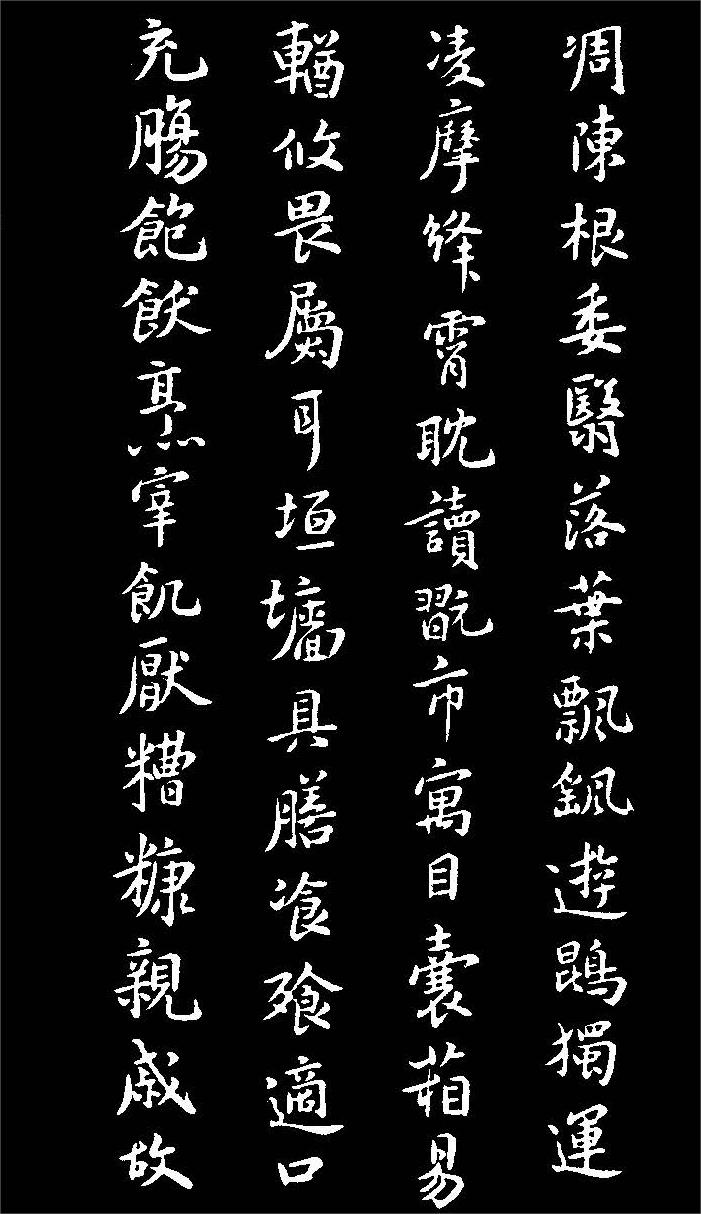 凋陳根委翳落葉飄颻遊鵾獨運
凌摩絳霄耽讀翫市寓目囊箱易
輶攸畏屬耳垣墻具膳飡飱適口
充腸飽飫烹宰飢厭糟糠親戚故